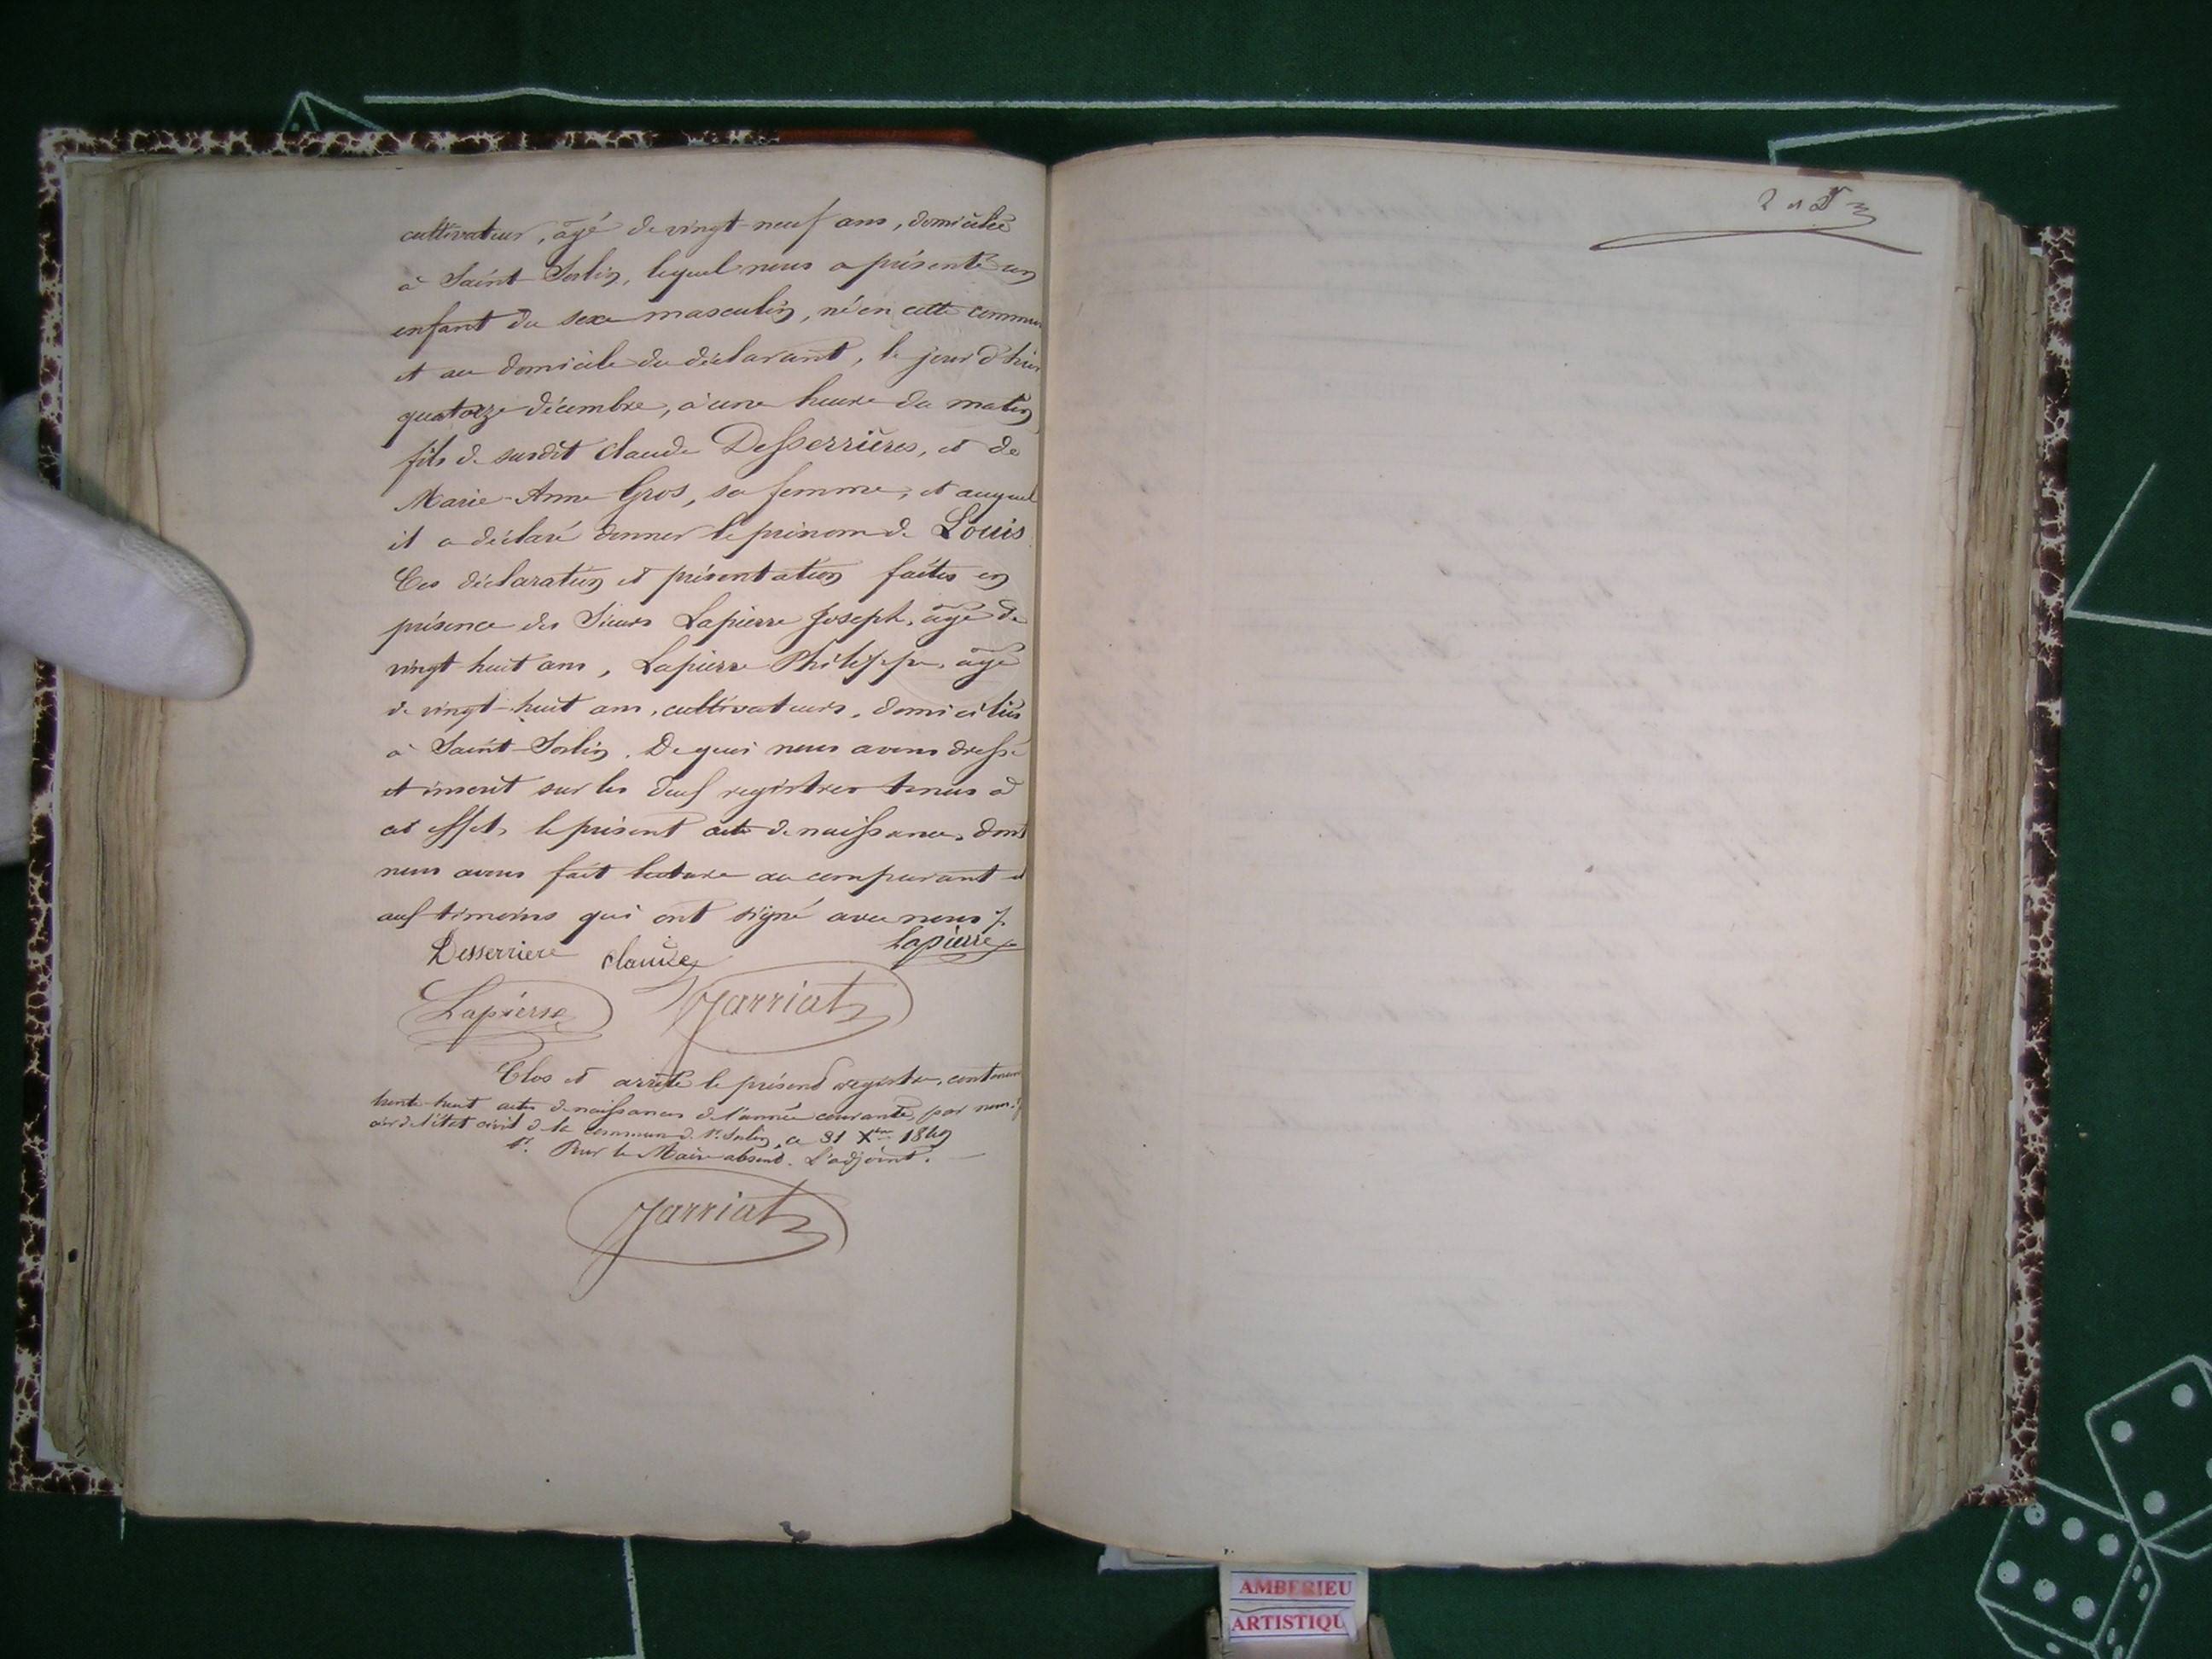 cultivateur, âgé de vingt-neuf ans, domicilié
à Saint-Sorlin, lequel nous a présenté un
enfant du sexe masculin, né en cette commune
et au domicile du déclarant, le jour d'hier
quatorze décembre, à une heure du matin
fils de susdit Claude Desserrières, et de
Marie-Anne Gros, sa femme, et auquel
il a déclaré donner le prénom de Louis.
Ces déclaration et présentation faites en
présence des Sieurs Lapierre Joseph, âgé de
vingt-huit ans, Lapierre Philippe, âgé
de vingt-huit ans, cultivateurs, domiciliés
à Saint-Sorlin. De quoi nous avons dressé
et inscrit sur les deux registres tenus à
cet effet, le présent acte de naissance, dont
nous avons fait lecture au comparant et
aux témoins qui ont signé avec nous
Desserriere claude Lapierre
Lapierre Jarriat
Clos et arrêté le présent registre, contenant
trente-huit actes de naissances de l'année courante, par nous
de l'état civil de la commune de St. Sorlin, ce 31 Xbre 1849
Pour le Maire absent. L'adjoint.
Jarriat
AMBERIEU
ARTISTIQU